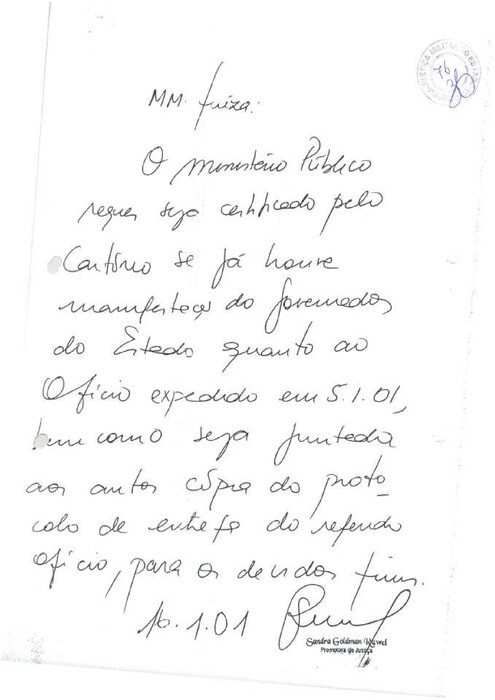 76
MM. Juíza:
O Ministério Público
requer seja certificado pelo
Cartório se já houve
manifestação do Governador
do Estado quanto ao
Ofício expedido em 5.1.01,
bem como seja juntada
aos autos cópia do proto-
colo de entrega do referido
ofício, para os devidos fins.
16.1.01
Sandra Goldman
Promotora de Justiça